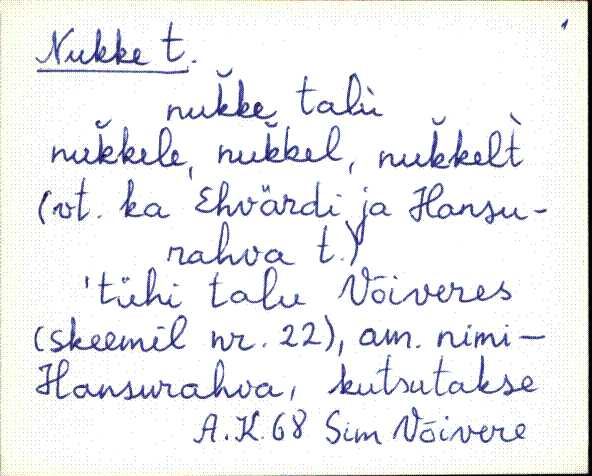 1
Nukke t.
nuk̆ke talù
nuk̆kele, nuk̆kel, nuk̆kelt̀
(vt. ka 'Ehvärdi ja Hansu-
rahva t.)
'tühi talu Võiveres
(skeemil nr. 22), am. nimi—
Hansurahva, kutsutakse
A.K.68 Sim Võivere